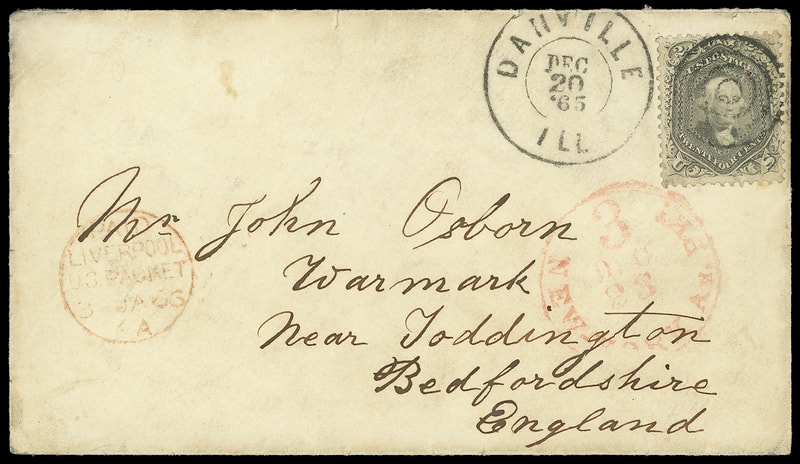 DANVILLE
DEC
20
'65
ILL
U.S. POSTAGE
TWENTY FOUR CENTS
Mr John Osborn
Warmark
Near Toddington
Bedfordshire
England
PAID
LIVERPOOL
U.S. PACKET
3 JA 66
A
3
NEW
PKT